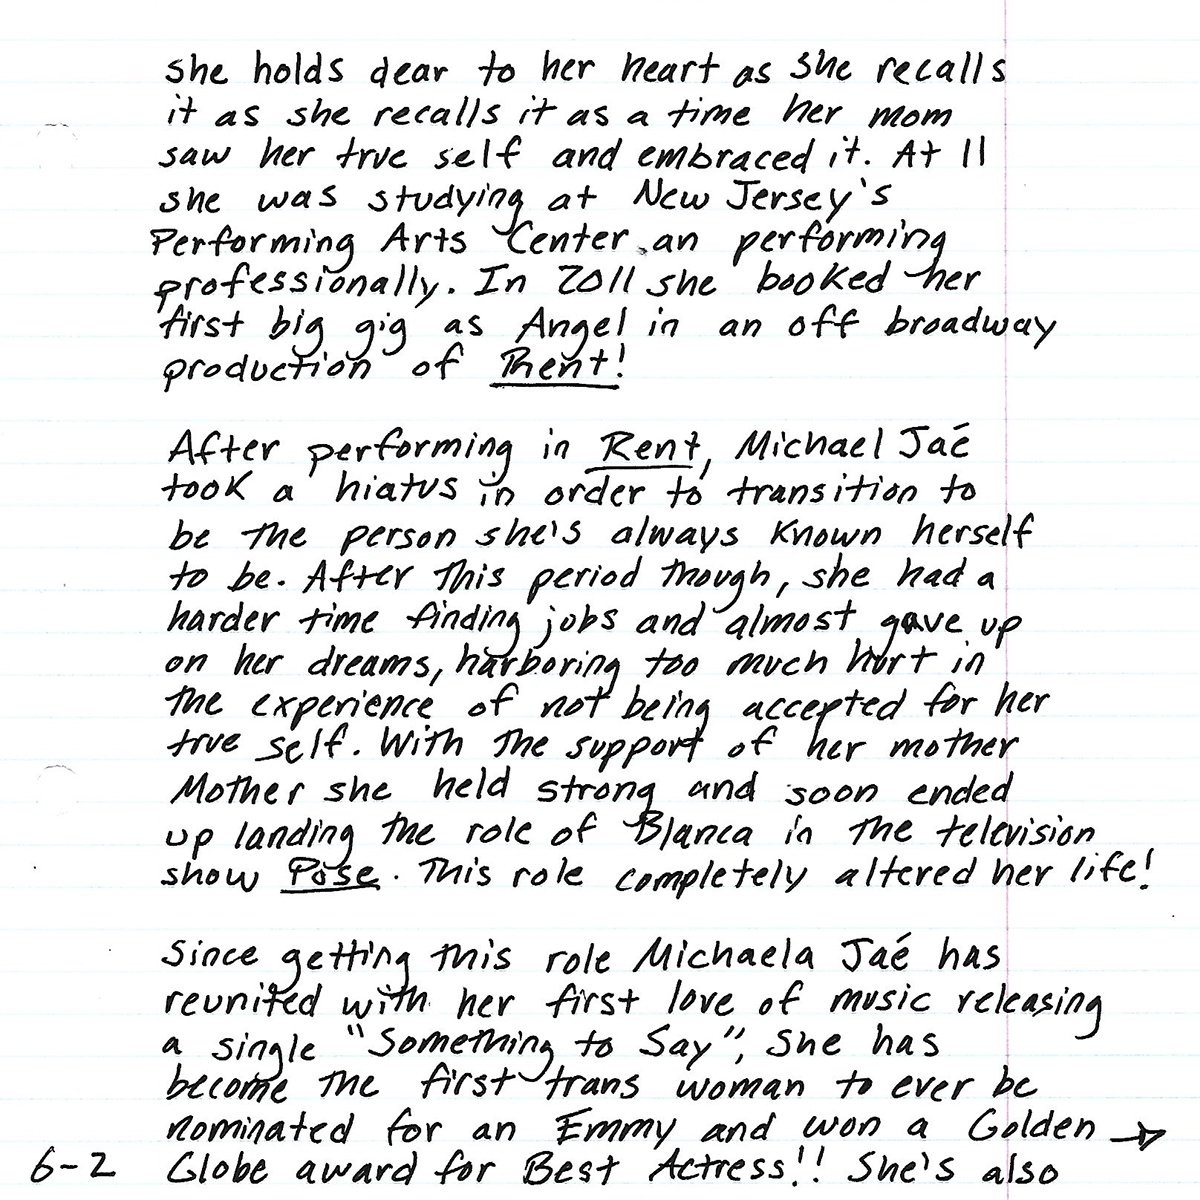 she holds dear to her heart as she recalls
it as she recalls it as a time her mom
saw her true self and embraced it. At 11
she was studying at New Jersey's
Performing Arts Center an performing
professionally. In 2011 she booked her
first big gig as Angel in an off broadway
production of Rent!
After performing in Rent, Michael Jaé
took a hiatus in order to transition to
be the person she's always known herself
to be. After this period though, she had a
harder time finding jobs and almost gave up
on her dreams, harboring too much hurt in
the experience of not being accepted for her
true self. With the support of her mother
Mother she held strong and soon ended
up landing the role of Blanca in the television
show Pose. This role completely altered her life!
Since getting this role Michaela Jaé has
reunited with her first love of music releasing
a single "Something to Say", She has
become the first trans woman to ever be
nominated for an Emmy and won a Golden →
6-2 Globe award for Best Actress!! She's also